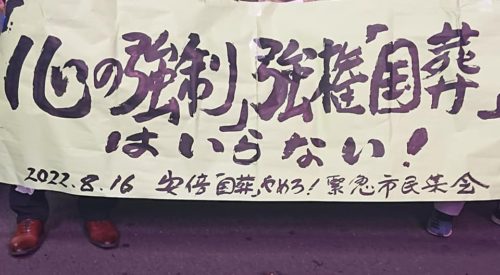 「心の強制」強権「国葬」
はいらない!
2022.8.16 安倍「国葬」やめろ!緊急市民集会